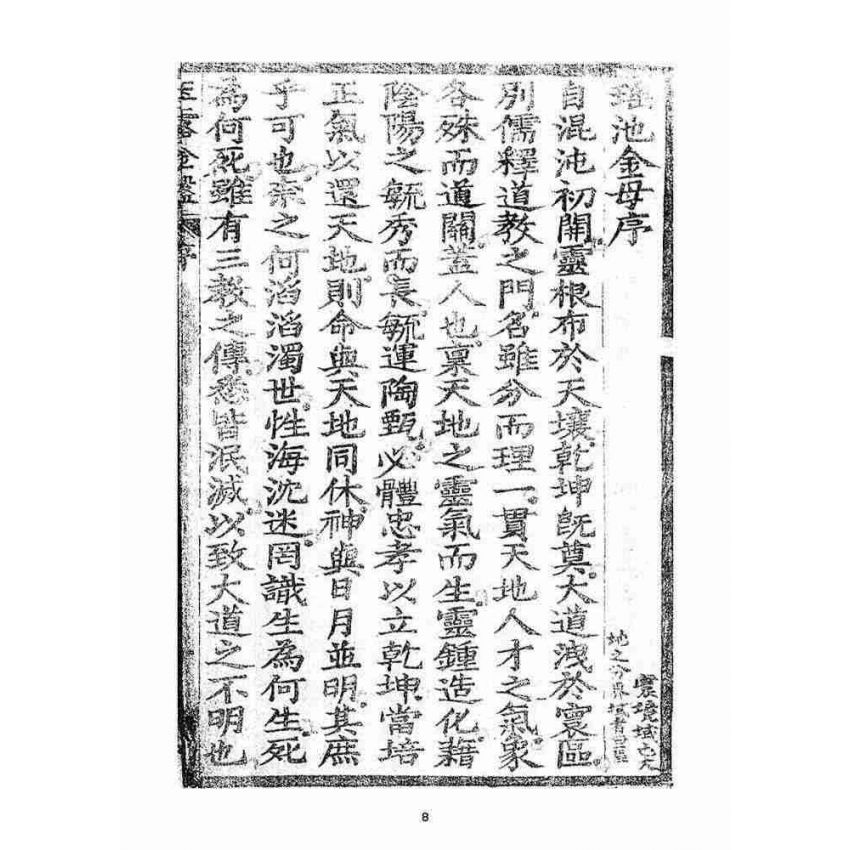 寰境域也天
地之分界域者曰區
瑶池金母序
自混沌初開靈根布於天壤。乾坤旣奠。大道洩於寰區。
別儒釋道教之門。名雖分而理一。貫天地人才之氣象。
各殊而道關。蓋人也。禀天地之靈氣而生。靈鍾造化。藉
陰陽之毓秀而長。毓運陶甄。必體忠孝以立乾坤。當培
正氣以還天地。則命與天地同休。神與日月並明。其庶
乎可也。柰之何滔滔濁世。性海沈迷。罔識生為何生。死
為何死。雖有三教之傳。悉皆泯滅。以致大道之不明也
玉露金盤 序
8